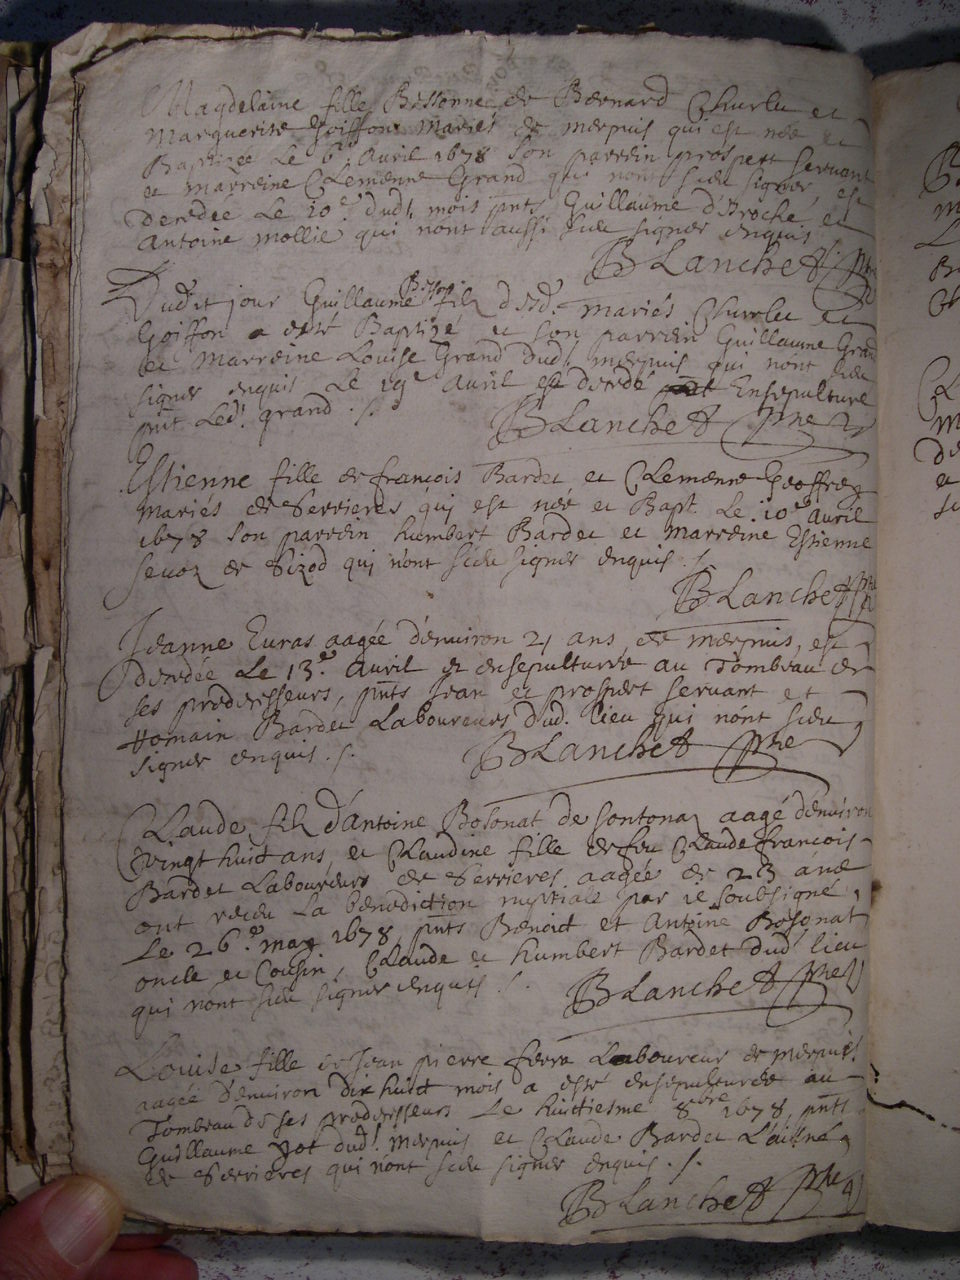 Magdelaine fille Bessonne de Bernard Churlet et
Marguerite Goiffon Mariés de merpuis qui est née et
Baptizée Le 6e Avril 1678 Son parrein prospert servant
et marreine Clemenne Grand qui nont sceu signer est
decedée Le 10e dudt mois pnts Guillaume d'Broche et
Antoine mollie qui nont aussi sceu signer enquis
BLanchet ptre
Dudit jour Guillaume Besson filz desd. mariés Churlet et
Goiffon a esté Baptizé et son parrein Guillaume Grand
et Marreine Louise Grand dudt merpuis qui nont sceu
signer enquis Le 19e avril est decedé Ensepulture
pnt Ledt grand ./.
BLanchet ptre
Estienne fille de francois Bardet et Clemenne Geoffrey
mariés de Serrieres qui est née et Bapt. Le 10e avril
1678 Son parrein humbert Bardet et Marreine Estienne
sevoz de Sizod qui nont sceu signer enquis ./.
BLanchet ptre
Jeanne Euras aagée d'environ 21 ans de merpuis, est
decedée Le 13e Avril et ensepulturée au Tombeau de
ses predecesseurs, pnts Jean et prospert servant et
Romain Bardet Laboureurs dud. lieu qui nont sceu
signer enquis ./.
BLanchet ptre
Claude filz d'Antoine Bosonat de sontonaz aagé denviron
vingt huict ans et Claudine fille de feu Claude francois
Bardet Laboureur de Serrieres aagée de 23 ans
ont receu La benediction nuptiale par ie soubsigné,
Le 26e may 1678, pnts Benoict et Antoine Bosonat
oncle et Cousin, Claude et humbert Bardet dud lieu
qui nont sceu signer enquis ./.
BLanchet ptre
Louise fille de Jean pierre ferra Laboureur de merpuis
aagée denviron dix huict mois a esté ensepulturée au
Tombeau de ses predecesseurs Le huictiesme 8bre 1678, pnts
Guillaume yot dudt merpuis et Claude Bardet L'aisné
de Serrieres qui nont sceu signer enquis ./.
BLanchet ptre